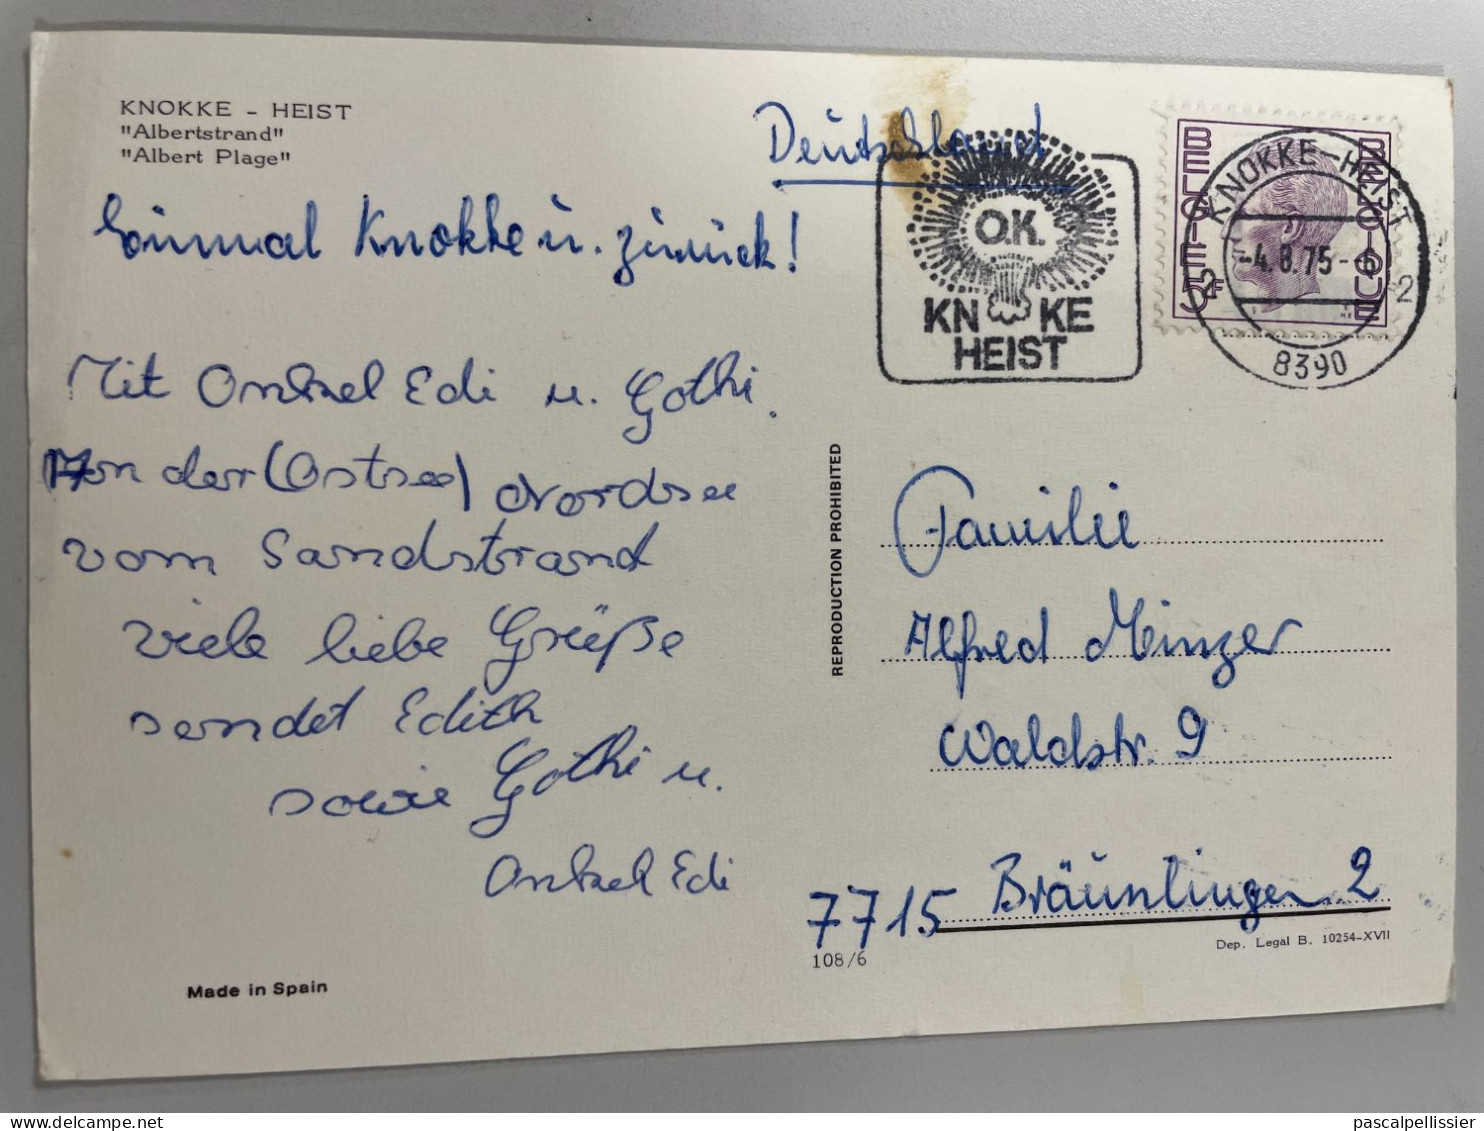 KNOKKE - HEIST
"Albertstrand"
"Albert Plage"
Einmal Knokke u. zurück!
Mit Onkel Edi u. Gothi.
Von der (Ostsee) Nordsee
vom Sandstrand
viele liebe Grüße
sendet Edith
sowie Gothi u.
Onkel Edi
Made in Spain
REPRODUCTION PROHIBITED
Deutschland
O.K.
KN KE
HEIST
BELGIE BELGIQUE
5F
KNOKKE-HEIST
-4.8.75-6
2
8390
Familie
Alfred Minzer
Waldstr. 9
7715 Bräunlingen 2
108/6
Dep. Legal B. 10254-XVII
pascalpellissier